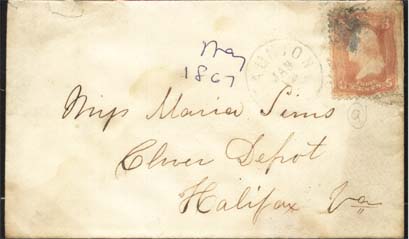 May
1867
JAN
Miss Maria Sims
Clover Depot
Halifax Va
a